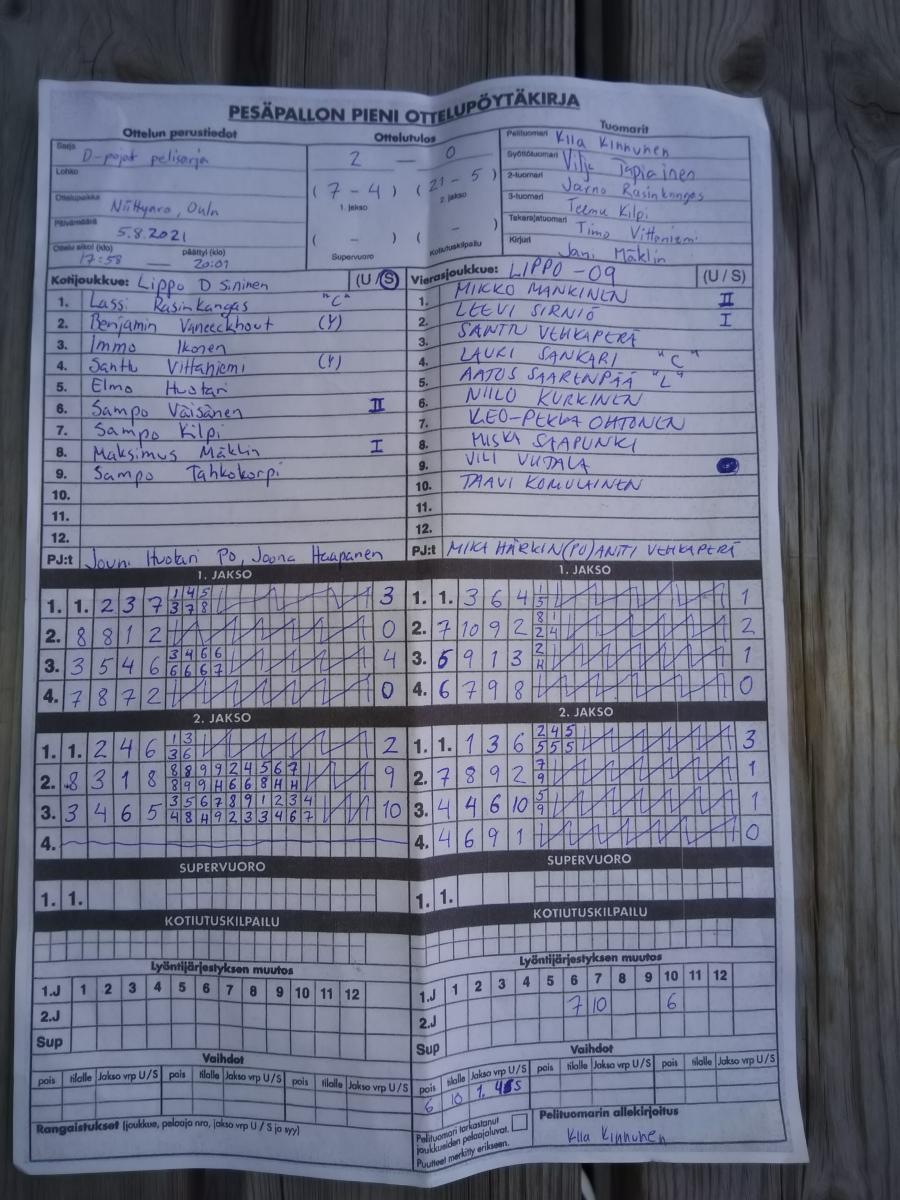 PESÄPALLON PIENI OTTELUPÖYTÄKIRJA
Ottelun perustiedot
Ottelutulos
Tuomarit
Sarja D-pojat pelisarja
Lohko
Ottelupaikka Niittyaro, Oulu
Päivämäärä 5.8.2021
Ottelu alkoi (klo) 17:58 — päättyi (klo) 20:01
2 — 0
(7 - 4) (21 - 5)
1. jakso 2. jakso
( - ) ( - )
Supervuoro Kotiutuskilpailu
Pelituomari Kinnunen
Syöttötuomari Tapiainen
2-tuomari Jarno Rasinkangas
3-tuomari Teemu Kilpi
Takarajatuomari Timo Vittaniemi
Kirjuri Jani Mäklin
Kotijoukkue: Lippo D Sininen (U / S)
1. Lassi Rasinkangas "C"
2. Benjamin Vaneeckhout (Y)
3. Immo Ikonen
4. Santtu Vittaniemi (Y)
5. Elmo Huotari
6. Sampo Väisänen II
7. Sampo Kilpi
8. Maksimus Mäklin I
9. Sampo Tahkokorpi
10.
11.
12.
PJ:t Jouni Huotari PO, Joona Haapanen
Vierasjoukkue: LIPPO -09 (U / S)
1. MIKKO MANKINEN II
2. LEEVI SIRNIÖ I
3. SANTTU VEHKAPERÄ
4. LAURI SANKARI "C"
5. AATOS SAARENPÄÄ "L"
6. NIILO KURKINEN
7. LEO-PEKKA OHTONEN
8. MISKA SAAPUNKI
9. VILI VIITALA
10. TAAVI KOMULAINEN
11.
12.
PJ:t MIKA HÄRKIN (PO) ANTTI VEHKAPERÄ
1. JAKSO
1. 1. 2 3 7 1 4 5 3
3 7 8
2. 8 8 1 2 0
3. 3 5 4 6 3 4 6 6 4
6 6 6 7
4. 7 8 7 2 0
2. JAKSO
1. 1. 2 4 6 1 3 2
3 6
2. 8 3 1 8 8 8 9 9 2 4 5 6 7 9
8 9 9 H 6 6 8 H H
3. 3 4 6 5 3 5 6 7 8 9 1 2 3 4 10
4 8 H 9 2 3 3 4 6 7
4.
SUPERVUORO
1. 1.
KOTIUTUSKILPAILU
1. JAKSO
1. 1. 3 6 4 1 1
5
2. 7 10 9 2 8 1 2
2 4
3. 5 9 1 3 2 1
H
4. 6 7 9 8 0
2. JAKSO
1. 1. 1 3 6 2 4 5 3
5 5 5
2. 7 8 9 2 7 1
9
3. 4 4 6 10 5 1
9
4. 4 6 9 1 0
SUPERVUORO
1. 1.
KOTIUTUSKILPAILU
Lyöntijärjestyksen muutos
1.J 1 2 3 4 5 6 7 8 9 10 11 12
2.J
Sup
Vaihdot
pois tilalle Jakso vrp U/S pois tilalle Jakso vrp U/S pois tilalle Jakso vrp U/S
Rangaistukset (joukkue, pelaaja nro, jakso vrp U / S ja syy)
Lyöntijärjestyksen muutos
1.J 1 2 3 4 5 6 7 8 9 10 11 12
2.J 7 10 6
Sup
Vaihdot
pois tilalle Jakso vrp U/S pois tilalle Jakso vrp U/S pois tilalle Jakso vrp U/S
6 10 1.
Pelituomari tarkastanut
joukkueiden pelaajaluvat.
Puutteet merkitty erikseen.
Pelituomarin allekirjoitus
Kinnunen